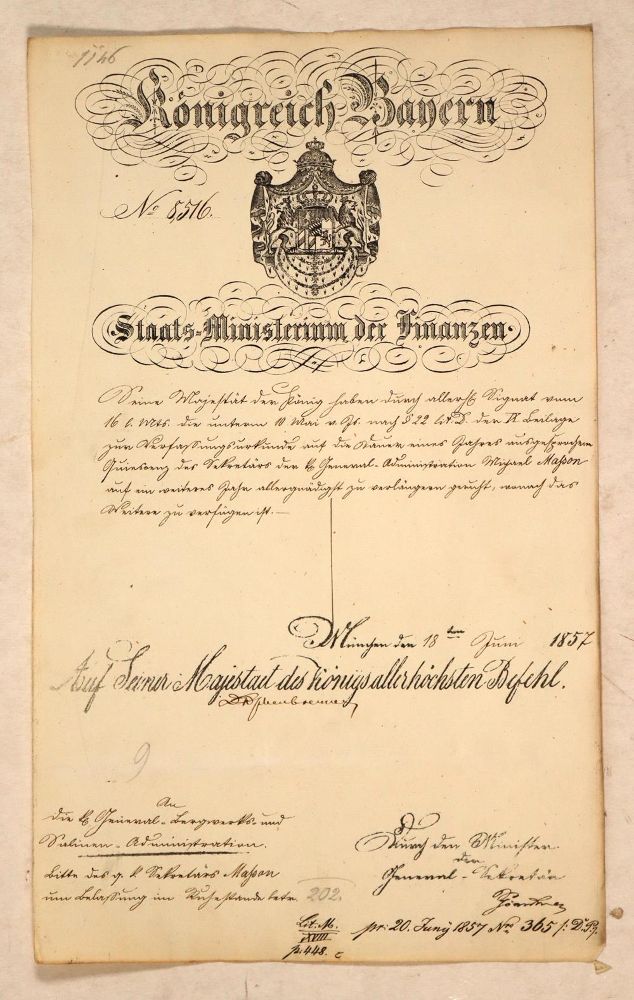 1146
Königreich Bayern
No 8516.
Staats-Ministerium der Finanzen.
Seine Majestät der König haben durch allerh. Signat vom
16 l. Mts. die unterm 10 Mai v. Js. nach § 22 lit. D. der IX. Beilage
zur Verfassungsurkunde auf die Dauer eines Jahres ausgesprochene
Quiescenz des Sekretärs der k. General-Administration Michael Masson
auf ein weiteres Jahr allergnädigst zu verlängern geruht, wonach das
Weitere zu verfügen ist.—
München den 18ten Juni 1857
Auf Seiner Majestaet des Königs allerhöchsten Befehl.
9
An
die k. General-Bergwerks- und
Salinen-Administration.
Durch den Minister
der
General-Sekretär
Bitte des q. k. Sekretärs Masson
um Belassung im Ruhestande betr.
202.
Lit. M.
XVIII
p. 448.
pr. 20. Juny 1857 Nro 365